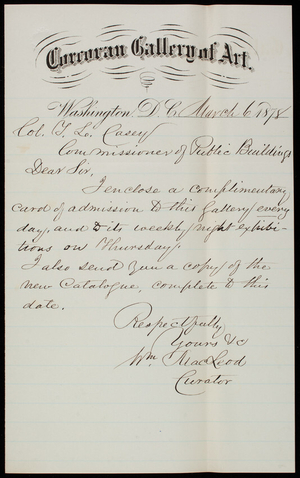 Corcoran Gallery of Art.
Washington D. C. March 6 1878
Col. T. L. Casey
Commissioner of Public Buildings
Dear Sir,
I enclose a complimentary
card of admission to this Gallery every
day, and to its weekly night exhibi-
tions on Thursday.
I also send you a copy of the
new Catalogue, complete to this
date.
Respectfully
Yours &c
Wm. MacLeod
Curator